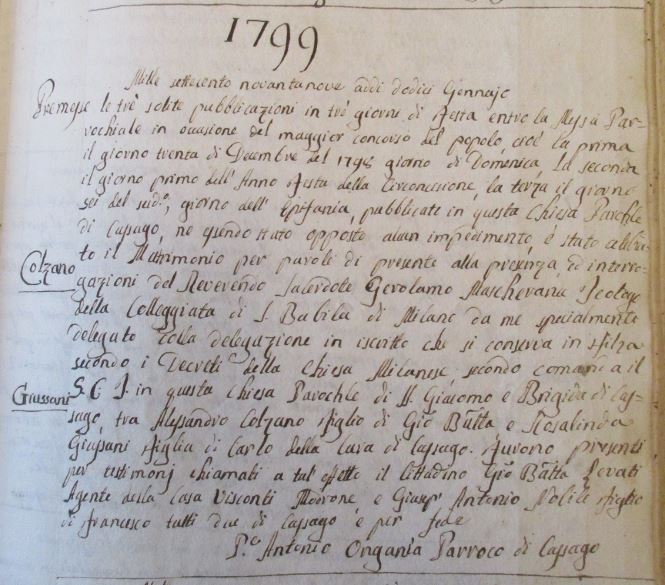 1799
Mille settecento novantanove addi dodici Gennajo
Premesse le trè solite pubblicazioni in trè giorni di festa entro la Messa Par-
rochiale in occasione del maggior concorso del popolo, cioè la prima
il giorno trenta di Decembre del 1798 giorno di Domenica, la seconda
il giorno primo dell' Anno festa della Circoncisione, la terza il giorno
sei del sudo, giorno dell' Epifania, pubblicate in questa Chiesa Parochle
di Cassago, ne essendo stato opposto alcun impedimento, è stato
to il Matrimonio per parole di presente alla presenza, ed interro-
Colzano
gazioni del Reverendo Sacerdote Gerolamo
della Colleggiata di S. Babila di Milano da me specialmente
delegato colla delegazione in iscritto che si conserva in sfilza
secondo i Decreti della Chiesa Milanese secondo comanda il
Giussani
S. C. T. in questa Chiesa Parochle di SS. Giacomo e Brigida di Cas-
sago, tra Alessandro Colzano figlio di Gio Batta e Rosalinda
Giussani figlia di Carlo della Cura di Cassago. furono presenti
per testimonj chiamati a tal' effetto il Cittadino Gio Batta
Agente della Casa Visconti Modrone e Giusep' Antonio Nobile figlio
di francesco tutti due di Cassago e per fede
P.e Antonio Ongania Parroco di Cassago